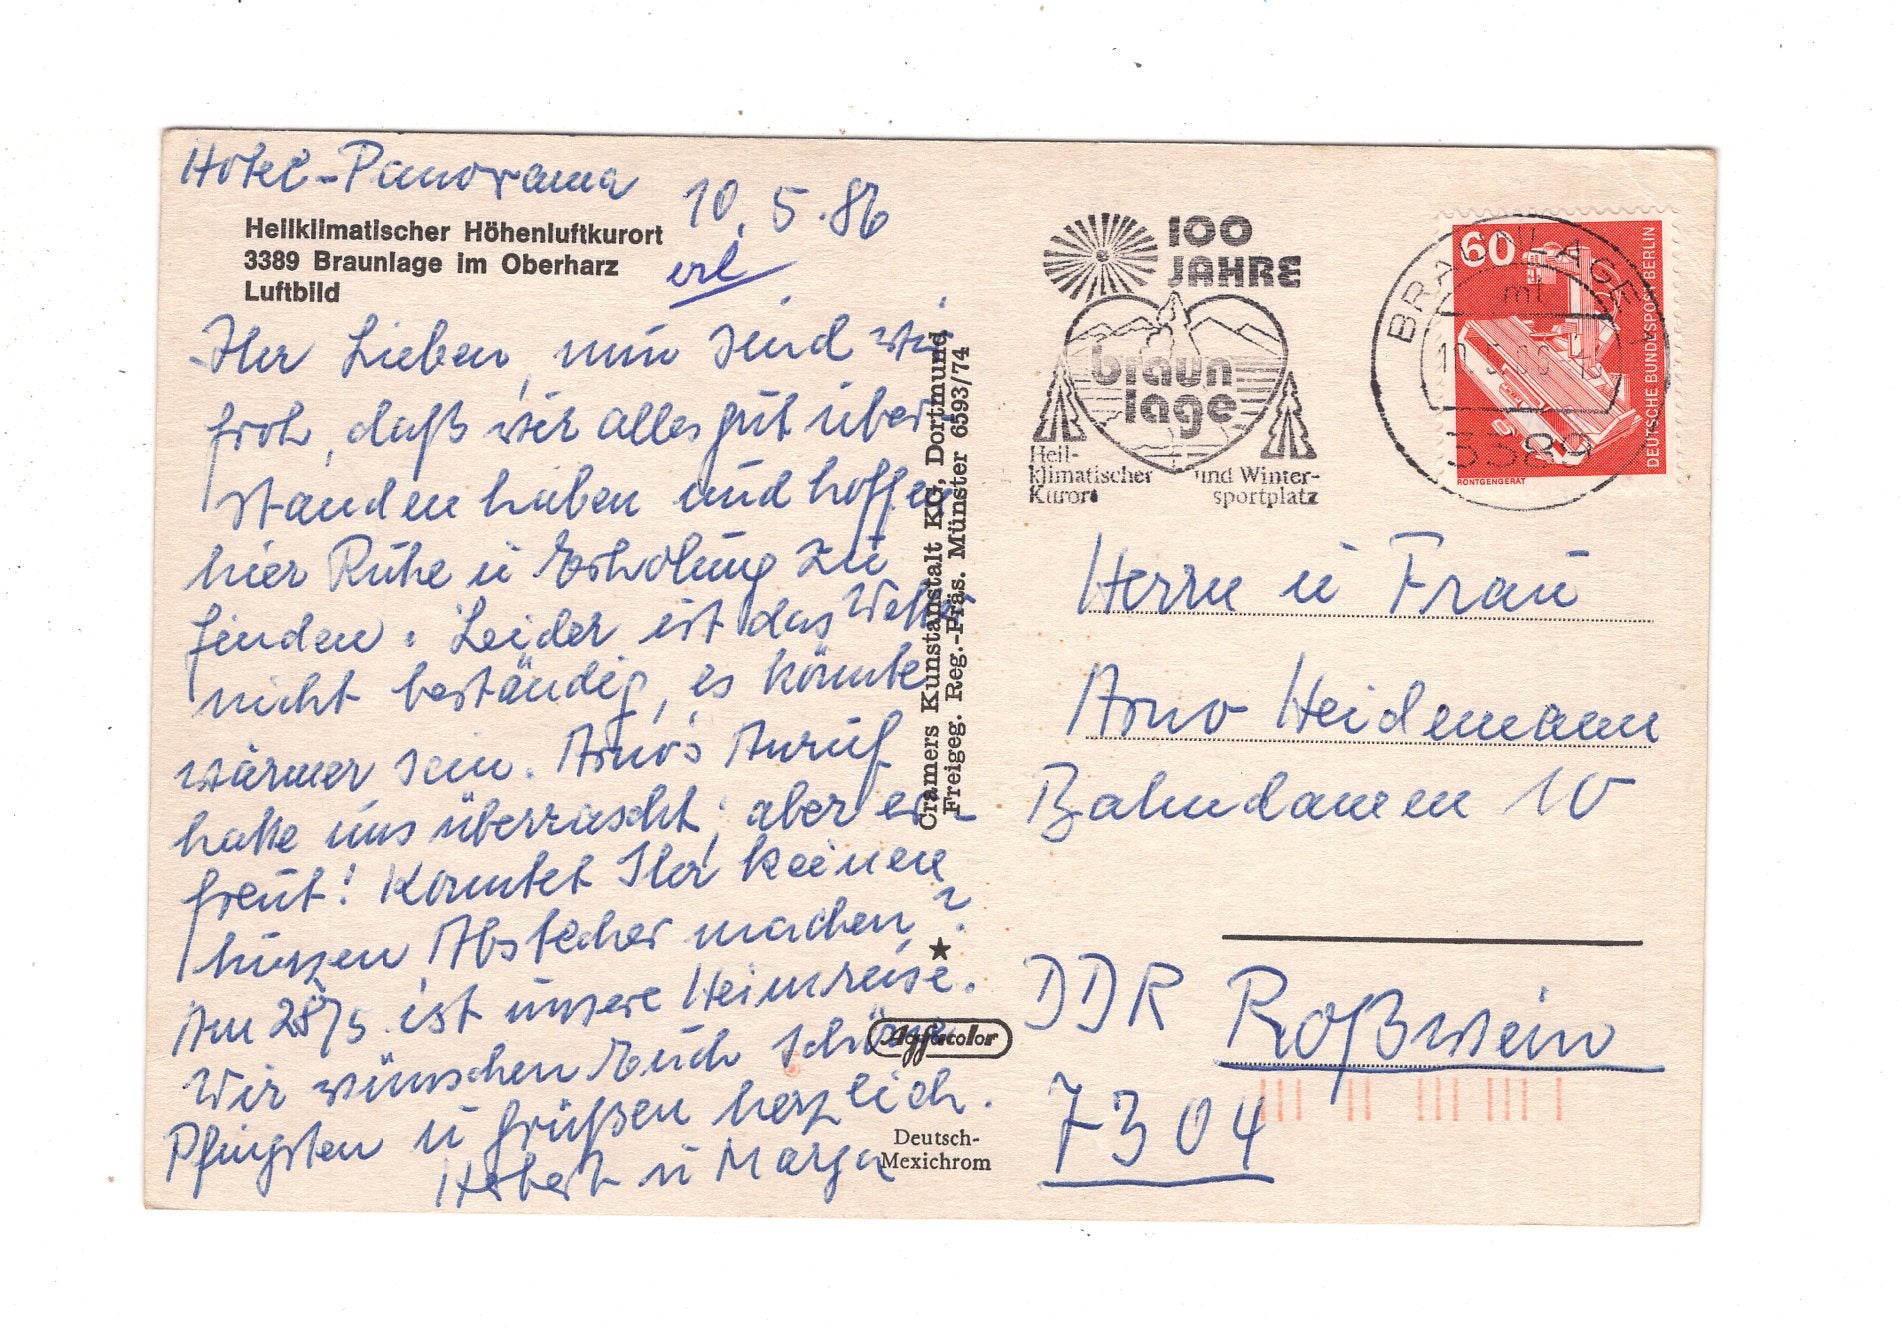 Hotel-Panorama
10.5.86
Heilklimatischer Höhenluftkurort
3389 Braunlage im Oberharz
Luftbild
erl
Ihr Lieben, nun sind wir
froh, daß wir alles gut über
standen haben und hoffen
hier Ruhe u Erholung zu
finden. Leider ist das Wetter
nicht beständig, es könnte
wärmer sein. Arno's Anruf
hatte uns überrascht, aber er-
freut! Könntet Ihr keinen
kurzen Abstecher machen?
Am 28/5. ist unsere Heimreise.
Wir wünschen Euch schöne
Pfingsten u grüßen herzlich.
Herbert u Marga
Cramers Kunstanstalt KG, Dortmund
Freigeg. Reg.-Präs. Münster 6593/74
★
Agfacolor
Deutsch-
Mexichrom
100
JAHRE
braun
lage
Heil-
klimatischer
Kurort
und Winter-
sportplatz
BRAUNLAGE 1
mt
3389
60
DEUTSCHE BUNDESPOST BERLIN
RÖNTGENGERÄT
Herrn u Frau
Arno Heidemann
Bahndamm 10
DDR Roßwein
7304